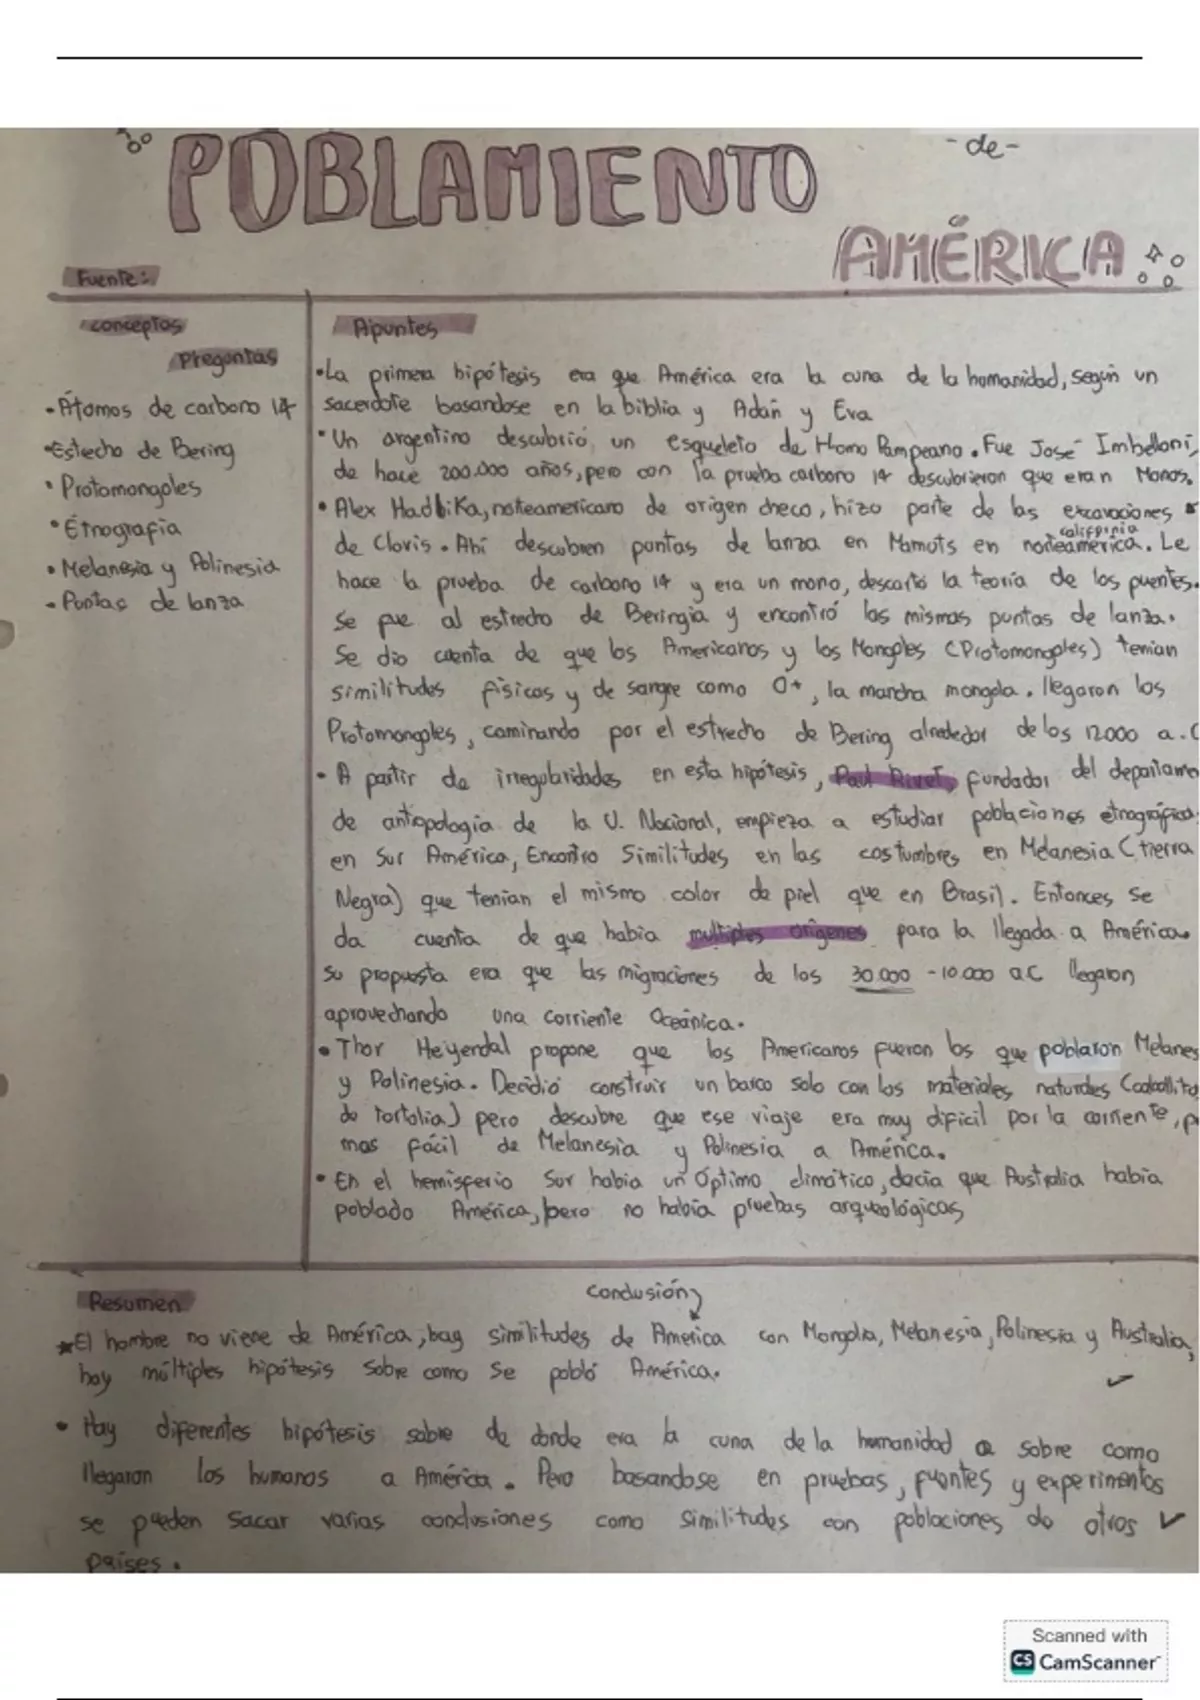 POBLAMIENTO
-de-
AMÉRICA
Fuente:
conceptos
Preguntas
• Átomos de carbono 14
• Estecho de Bering
• Protomongoles
• Étnografía
• Melanesia y Polinesia
• Puntas de lanza
Apuntes
• La primera hipótesis era que América era la cuna de la humanidad, según un
sacerdote basandose en la biblia y Adán y Eva
• Un argentino descubrió un esqueleto de Homo Pampeano. Fue José Imbelloni,
de hace 200.000 años, pero con la prueba carbono 14 descubrieron que eran Monos.
• Alex Hadbika, norteamericano de origen checo, hizo parte de las excavaciones
california
de Clovis. Ahí descubren puntas de lanza en Mamuts en norteamerica. Le
hace la prueba de carbono 14 y era un mono, descartó la teoría de los puentes.
Se fue al estrecho de Beringia y encontró las mismas puntas de lanza.
Se dio cuenta de que los Americanos y los Mongoles (Protomongoles) tenian
similitudes físicas y de sangre como O+, la mancha mongola. llegaron los
Protomongoles, caminando por el estrecho de Bering alrededor de los 12000 a.C
• A partir de irregularidades en esta hipótesis, Paul Rivet, fundador del departame
de antropología de la U. Nacional, empieza a estudiar poblaciones etnográficas
en Sur América, Encontro Similitudes en las costumbres en Melanesia (tierra
Negra) que tenian el mismo color de piel que en Brasil. Entonces se
da cuenta de que habia multiples origenes para la llegada a América.
su propuesta era que las migraciones de los 30.000 - 10.000 a.C llegaron
aprovechando una corriente Oceánica.
• Thor Heyerdal propone que los Americanos fueron los que poblaron Melanes
y Polinesia. Decidió construir un barco solo con los materiales naturales
de pero descubre que ese viaje era muy dificil por la corriente, p
mas fácil de Melanesia y Polinesia a América.
• En el hemisferio Sur habia un óptimo climático, decia que Australia había
poblado América, pero no había pruebas arqueológicas
Resumen
Conclusión
★ El hombre no viene de América, hay similitudes de America con Mongolia, Melanesia, Polinesia y Australia,
hay múltiples hipótesis sobre como se pobló América.
• Hay diferentes hipótesis sobre de donde era la cuna de la humanidad o sobre como
llegaron los humanos a América. Pero basandose en pruebas, fuentes y experimentos
se pueden sacar varias conclusiones como similitudes con poblaciones de otros
países.
Scanned with
CS CamScanner